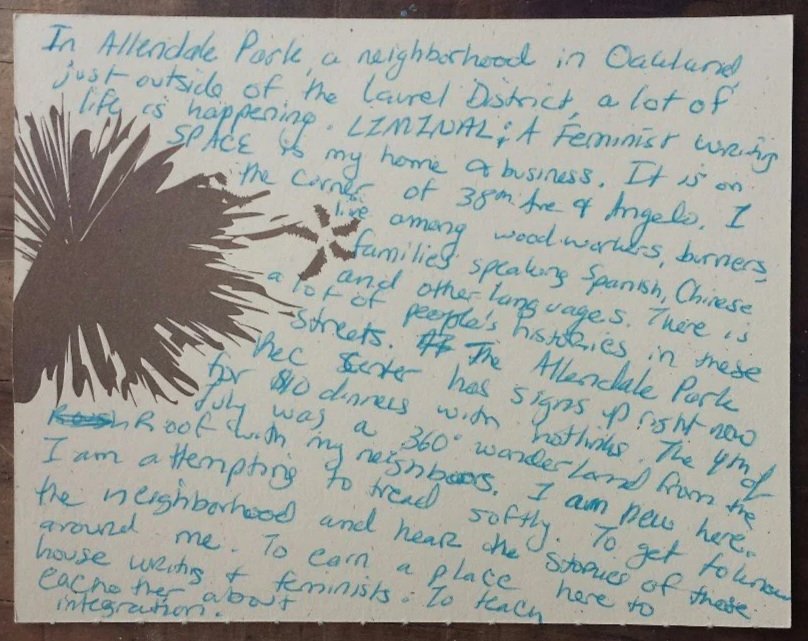 In Allendale Park, a neighborhood in Oakland,
just outside of the Laurel District, a lot of
life is happening. LIMINAL: A Feminist writing
SPACE is my home & business. It is on
the corner of 38th Ave & Angelo. I
live among woodworkers, burners,
families speaking Spanish, Chinese
and other languages. There is
a lot of people's histories in these
streets. The Allendale Park
Rec Center has signs up right now
for $10 dinners with hotlinks. The 4th of
July was a 360° wonderland from the
Roof with my neighbors. I am new here.
I am attempting to tread softly. To get to know
the neighborhood and hear the stories of these
around me. To earn a place here to
house writing & feminists. To teach
eachother about
integration.